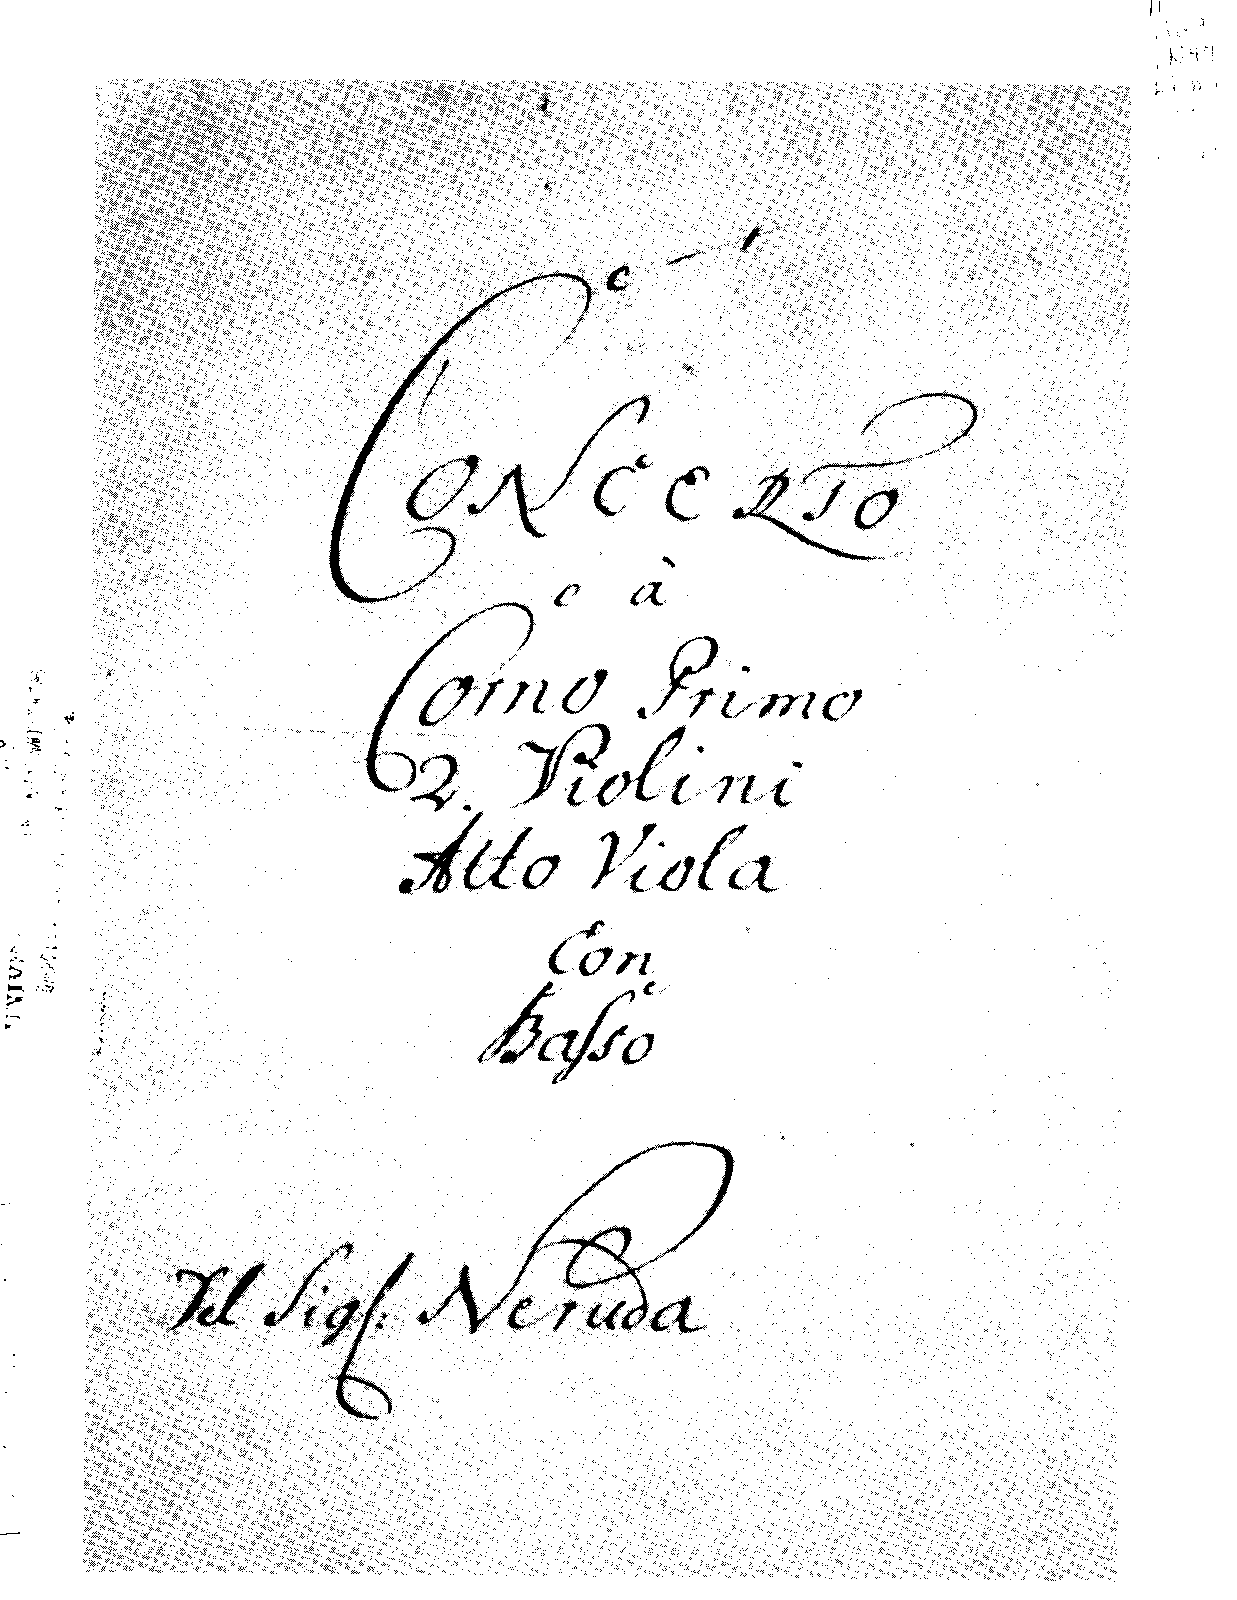 CONCERTO
à
Corno Primo
2. Violini
Alto Viola
Con
Baſso
Del Sigr: Neruda